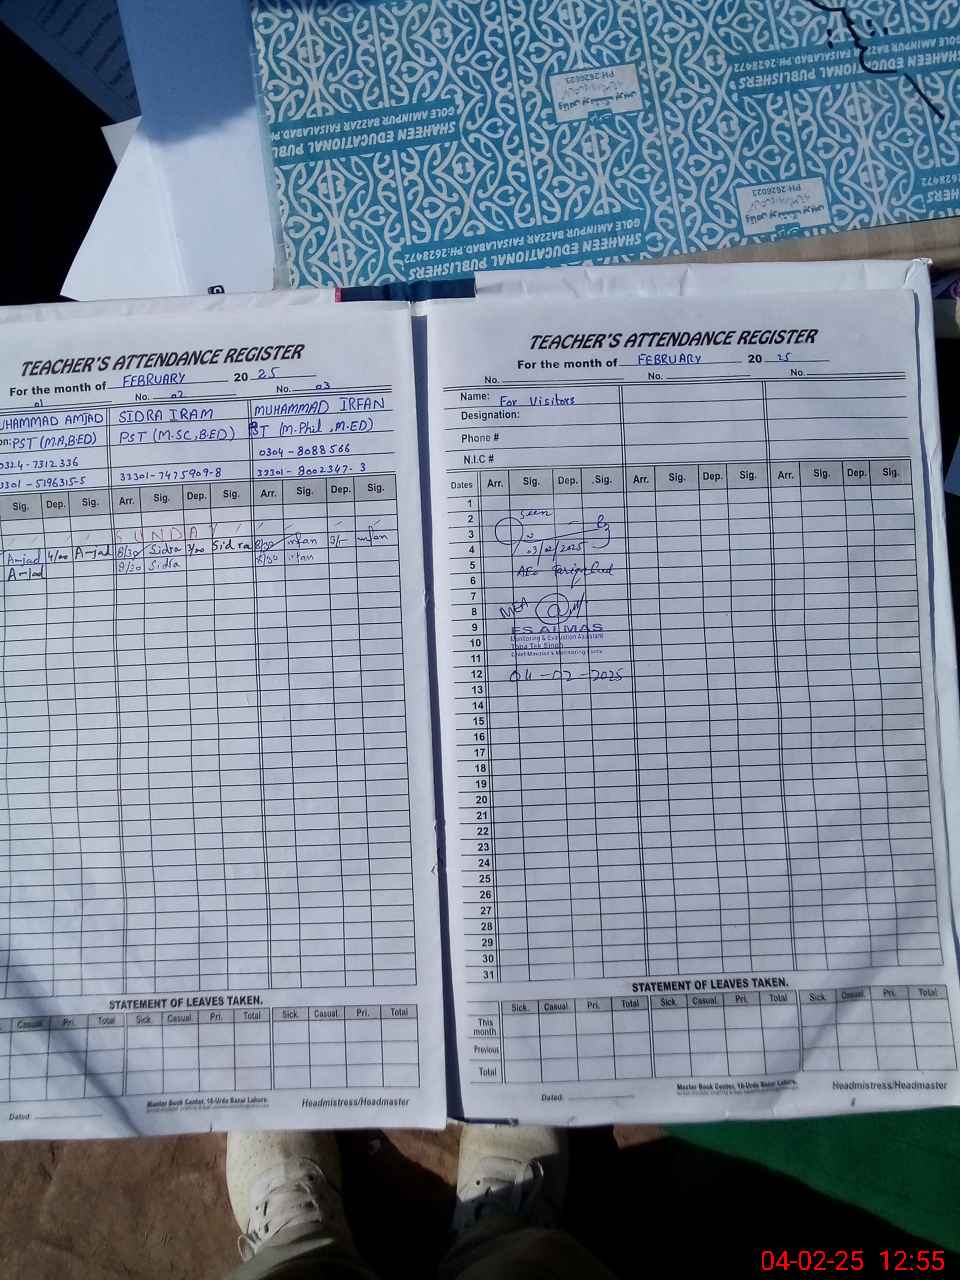 SHAHEEN EDUCATIONAL PUBLISHERS
GOLE AMINPUR BAZZAR FAISALABAD.PH:2628472
PH:2626023
SHAHEEN EDUCATIONAL PUBL
GOLE AMINPUR BAZZAR FAISALABAD.PH
PH:2626023
SHAHEEN EDUCATIONAL PUBLISHERS
GOLE AMINPUR BAZZAR FAISALABAD.PH:2628472
TEACHER'S ATTENDANCE REGISTER
For the month of FEBRUARY 2025
01 No. 02 No. 03
UHAMMAD AMJAD SIDRA IRAM MUHAMMAD IRFAN
on: PST (MA,B.ED) PST (M.SC,B.ED) PST (M.Phil,M.ED)
0324-7312336 0304-8088566
3301-5196315-5 33301-7475909-8 33301-8002347-3
Sig. Dep. Sig. Arr. Sig. Dep. Sig. Arr. Sig. Dep. Sig.
SUNDA
Amjad Amjad 8/30 Sidra Sidra 8/30 irfan irfan
Amjad 8/30 Sidra 8/30 irfan
STATEMENT OF LEAVES TAKEN.
Casual. Pri. Total Sick. Casual. Pri. Total Sick. Casual. Pri. Total
Dated: Master Book Center, 16-Urdu Bazar Lahore. Headmistress/Headmaster
TEACHER'S ATTENDANCE REGISTER
For the month of FEBRUARY 2025
No. No. No.
Name: For Visitors
Designation:
Phone #
N.I.C #
Dates Arr. Sig. Dep. Sig. Arr. Sig. Dep. Sig. Arr. Sig. Dep. Sig.
1
2 Seen
3
4 03/02/2025
5
6 AEO
7
8 MEA
9 ALMAS
10 Monitoring & Evaluation Assistant
Toba Tek Singh
11 Chief Minister's Monitoring Force
12 04-02-2025
13
14
15
16
17
18
19
20
21
22
23
24
25
26
27
28
29
30
31
STATEMENT OF LEAVES TAKEN.
Sick. Casual. Pri. Total Sick. Casual. Pri. Total Sick. Casual. Pri. Total
This month
Previous
Total
Dated: Master Book Center, 16-Urdu Bazar Lahore. Headmistress/Headmaster
04-02-25 12:55